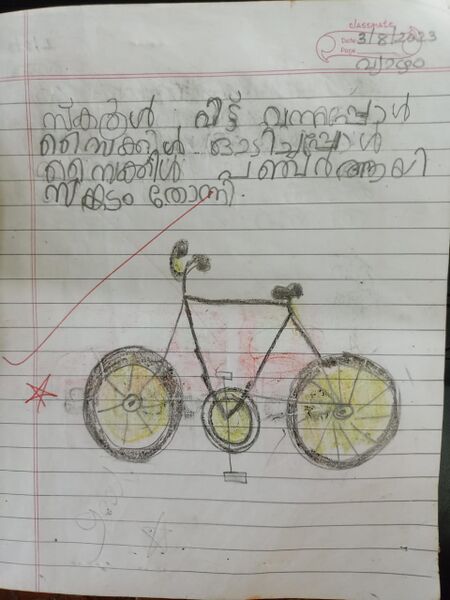 classmate
Date 3/8/2023
Page
വ്യാഴം
സ്കൂൾ വീട്ട് വന്നപ്പോൾ
സൈക്കിൾ ഓടിച്ചപ്പോൾ
സൈക്കിൾ പഞ്ചർ ആയി
സങ്കടം തോന്നി.